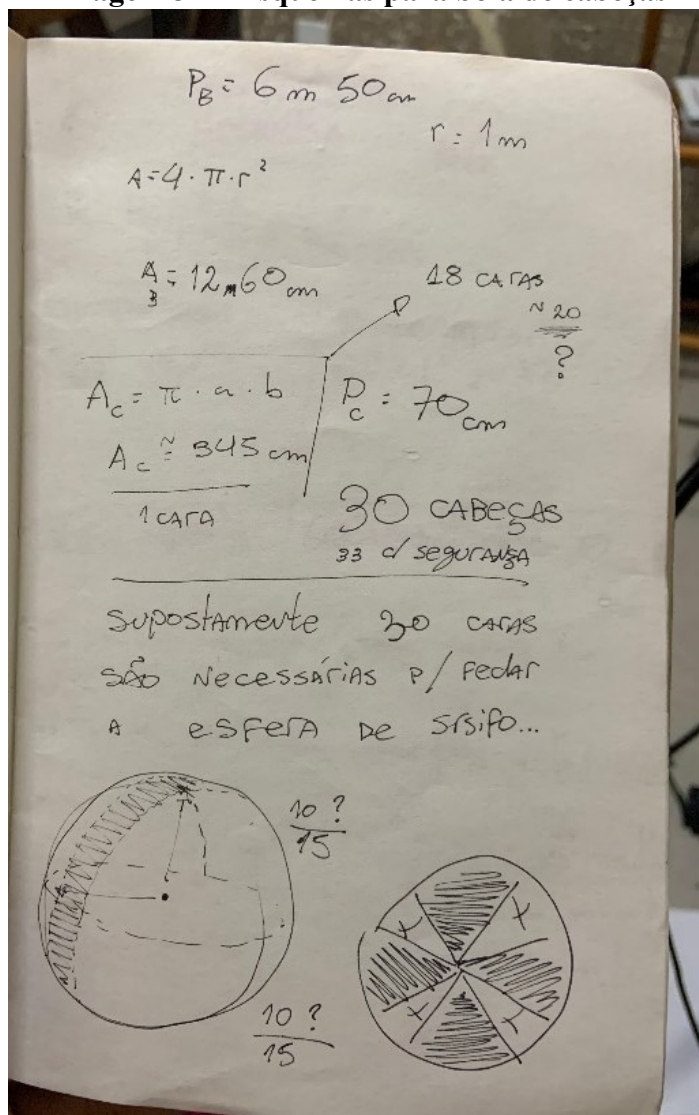 P_B = 6 m 50 cm
r = 1 m
A = 4 · π · r²
A_B = 12 m 60 cm
18 CARAS
~ 20
?
A_C = π · a · b
P_C = 70 cm
A_C ≅ 345 cm
1 CARA
30 CABEÇAS
33 c/ SEGURANSA
SUPOSTAMENTE 30 CARAS
SÃO NECESSÁRIAS P/ FECHAR
A ESFERA DE SÍSIFO...
10 ?
15
10 ?
15